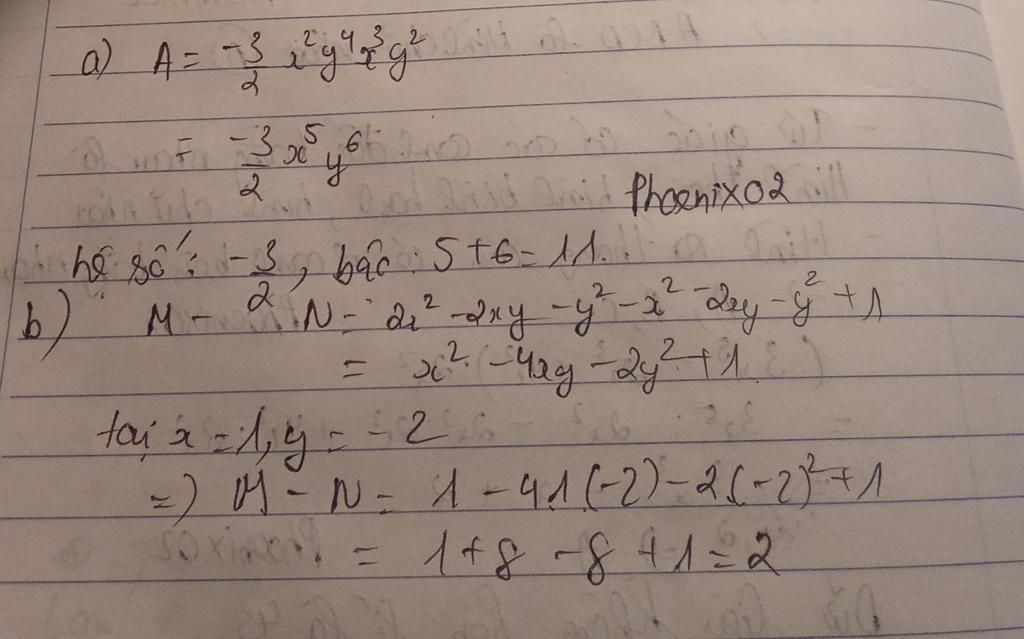 a) A = -3/2 x²y⁴x³y²
= -3/2 x⁵y⁶
Phoenix02
hệ số: -3/2, bậc: 5+6=11.
b) M - N = 2x² -2xy -y² -x² -2xy -y² +1
= x² -4xy -2y² +1
tại x=1, y=-2
=) M - N = 1 - 4.1(-2) - 2.(-2)² +1
= 1+8 -8 +1 = 2